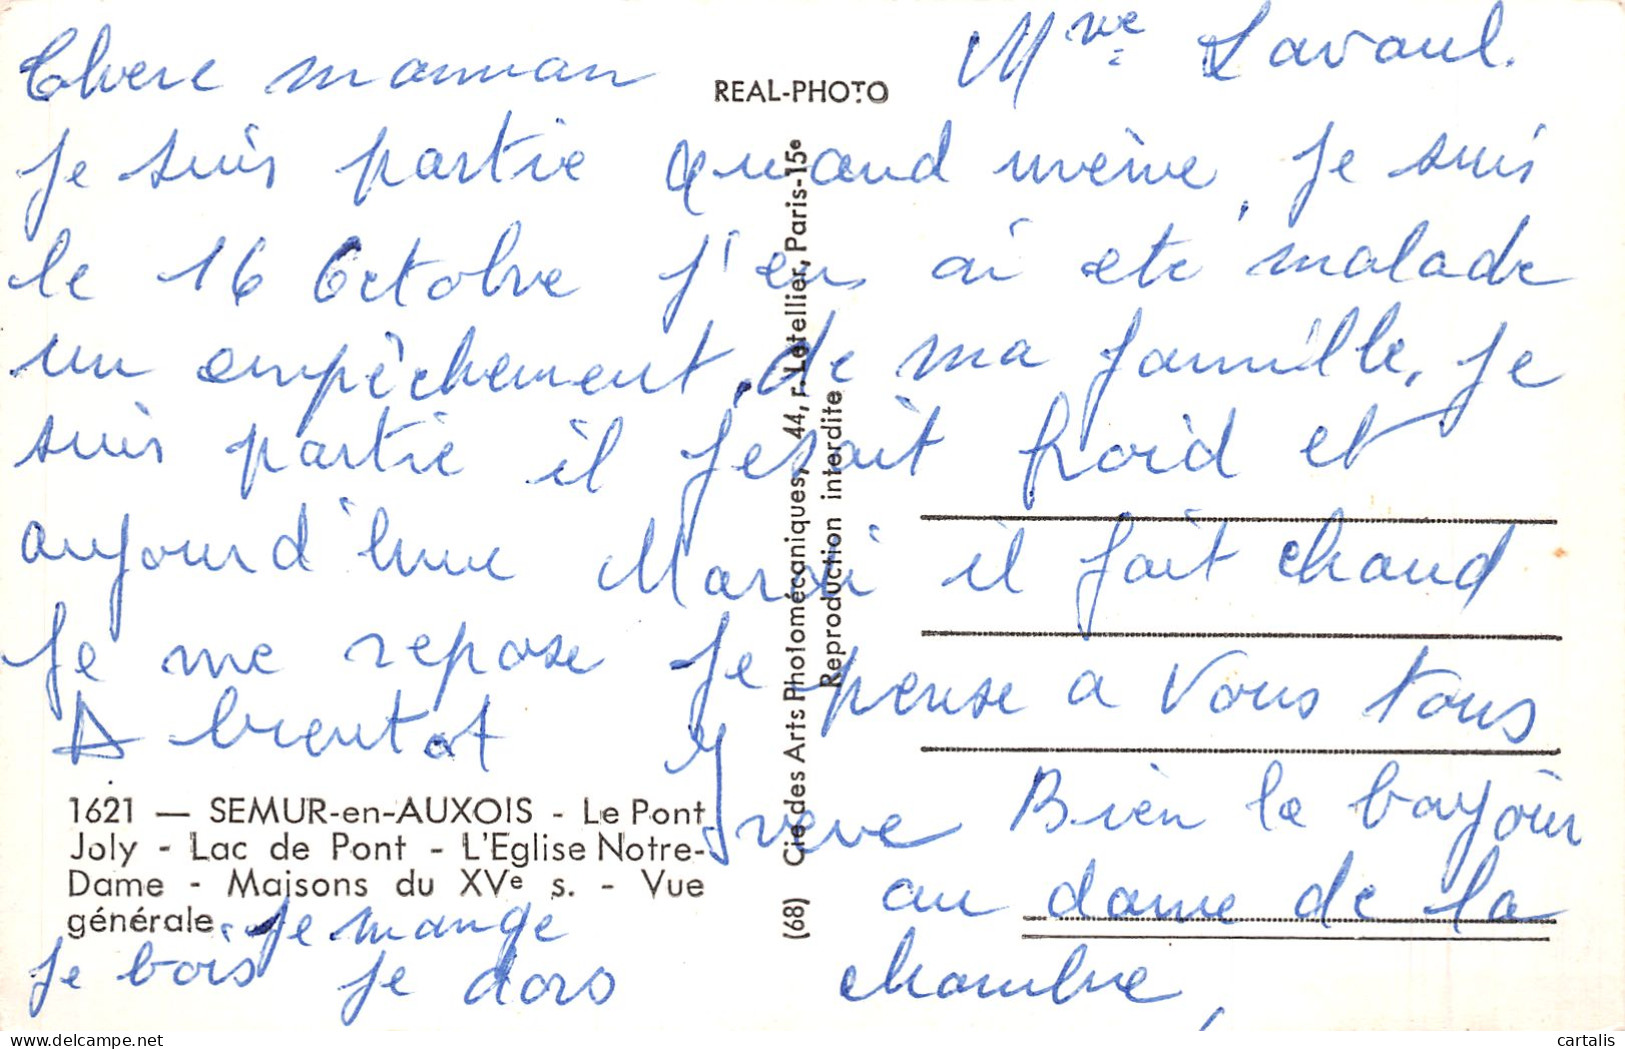 Chere maman
Mme Lavaul.
REAL-PHOTO
Je suis partie quand même, Je suis
le 16 Octobre J'en ai ete malade
un empêchement de ma famille, Je
suis partie il fesait froid et
aujourd'hui Mardi il fait chaud
Je me repose Je pense a Vous tous
A bientot Yveve
Bien le bonjour
au dame de la
chambre,
1621 — SEMUR-en-AUXOIS - Le Pont
Joly - Lac de Pont - L'Eglise Notre-
Dame - Maisons du XVe s. - Vue
générale.
Je mange
Je bois Je dors
(68) Cie des Arts Photomécaniques, 44, r. Letellier, Paris-15e
Reproduction interdite
cartalis